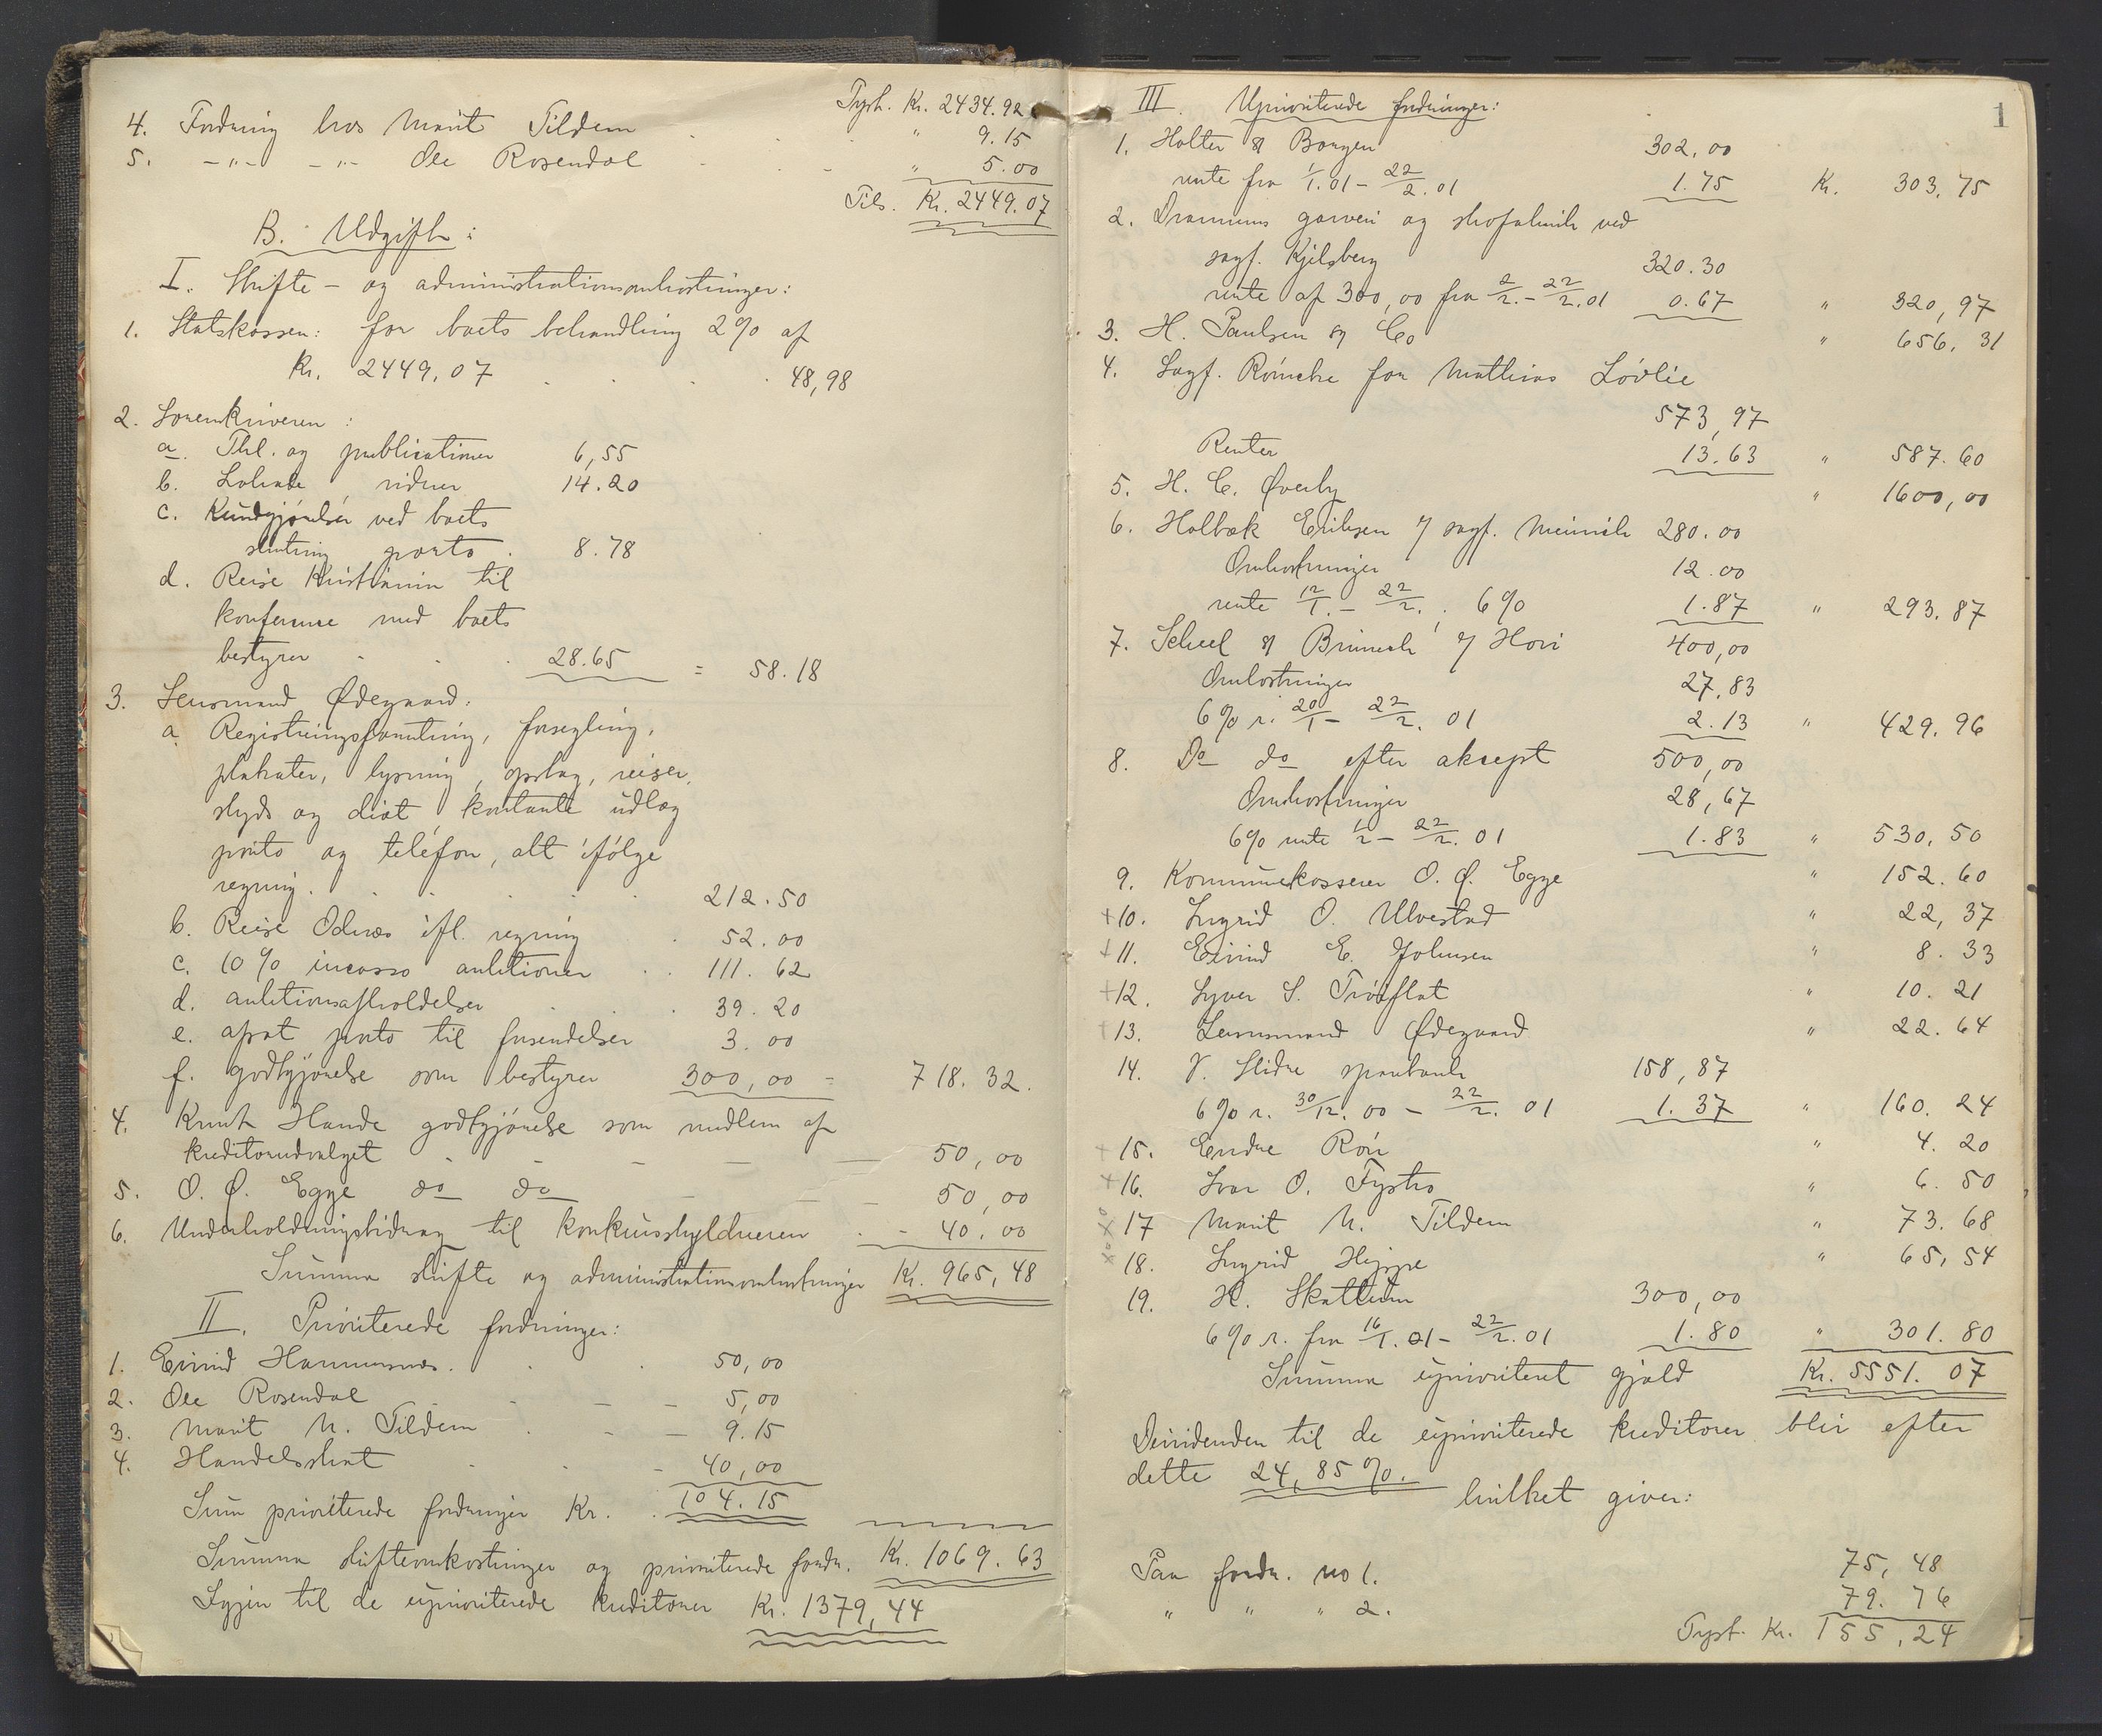 Tysk. Kr. 2434.92
4. Fordring hos Marit Tildem " 9.15
5. -"- -"- Ole Rosendal " 5.00
Tils. Kr. 2449.07
B. Udgifter:
I. Skifte- og administrationsomkostninger:
1. Statskassen: for boets behandling 2% af
Kr. 2449.07 48,98
2. Sorenskriveren:
a. Thl. og publicationer 6,55
b. Lokale, vidner 14.20
c. Kundgjørelser ved boets
slutning porto 8.78
d. Reise Kristiania til
konference med boets
bestyrer 28.65 = 58.18
3. Lensmand Ødegaard:
a. Registreringsforretning, forsegling,
plakater, lysning, opslag, reiser,
skyds og diæt kontante udlæg
porto og telefon, alt ifølge
regning. 212.50
b. Reise Odnæs ifl. regning 52.00
c. 10% incasso auktioner 111.62
d. auktionsafholdelser 39.20
e. apart porto til forsendelser 3.00
f. godtgjørelse som bestyrer 300,00 = 718.32.
4. Knut Hande godtgjørelse som medlem af
kreditorudvalget 50,00
5. O. Ø. Egge do do 50,00
6. Underholdningsbidrag til konkursskyldneren 40.00
Summa skifte og administrationsomkostninger Kr. 965,48
II. Prioriterede fordringer:
1. Eivind Hammersnes. 50,00
2. Ole Rosendal 5,00
3. Marit N. Tildem 9.15
4. Handelsskat 40,00
Sum prioriterede fordringer Kr. 104.15
Summa skifteomkostninger og prioriterede fordr. Kr. 1069.63
Igjen til de uprioriterede kreditorer Kr. 1379,44
1
III. Uprioriterede fordringer:
1. Holter & Borgen 302,00
rente fra 1/1.01 - 22/2.01 1.75 Kr. 303,75
2. Drammens garveri og skofabrik ved
sagf. Kjelsberg 320.30
rente af 300,00 fra 2/2. - 22/2.01 0.67 " 320,97
3. H. Paulsen & Co " 656,31
4. Sagf. Römcke for Mathias Lövlie
573,97
Renter 13.63 " 587.60
5. H. C. Øverby " 1600,00
6. Holbæk Eriksen v/ sagf. Meinich 280.00
Omkostninger 12.00
rente 12/1. - 22/2. 6% 1.87 " 293.87
7. Scheel & Brinch v/ Hovi 400,00
Omkostninger 27,83
6% r. 20/1 - 22/2. 01 2.13 " 429.96
8. Do do efter aksept 500,00
Omkostninger 28,67
6% rente 1/2 - 22/2. 01 1.83 " 530,50
9. Kommunekasserer O. Ø. Egge " 152.60
+10. Ingrid O. Ulvestad " 22,37
+11. Eivind E. Johnsen " 8.33
+12. Syver S. Tröflat " 10.21
+13. Lensmand Ødegaard " 22.64
14. V. Slidre sparebank 158,87
6% r. 30/12. 00 - 22/2. 01 1.37 " 160.24
+15. Endre Rön " 4.20
+16. Ivar O. Fystro " 6.50
17 Marit N. Tildem " 73.68
18. Ingrid Hippe " 65,54
19. H. Skattum 300,00
6% r. fra 16/1. 01 - 22/2. 01 1.80 " 301.80
Summa uprioritert gjæld Kr. 5551.07
Dividenden til de uprioriterede kreditorer blir efter
dette 24,85%. hvilket giver:
Paa fordr. no 1. 75,48
" " " 2. 79.76
Tysk. Kr. 155,24